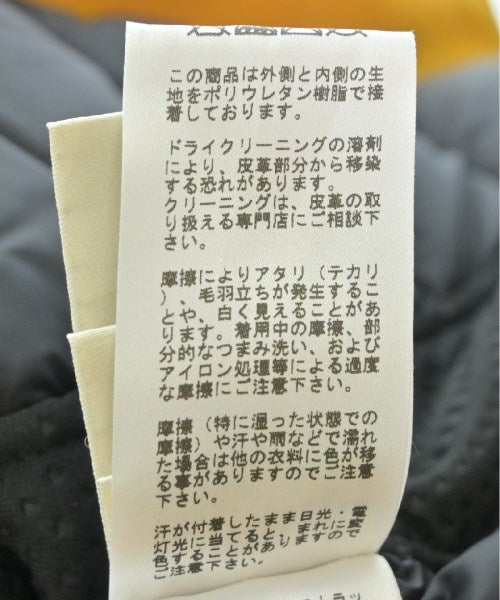 この商品は外側と内側の生
地をポリウレタン樹脂で接
着しております。
ドライクリーニングの溶剤
により、皮革部分から移染
する恐れがあります。
クリーニングは、皮革の取
り扱える専門店にご相談下
さい。
摩擦によりアタリ（テカリ
）、毛羽立ちが発生するこ
とや、白く見えることがあ
ります。着用中の摩擦、部
分的なつまみ洗い、および
アイロン処理等による過度
な摩擦にご注意下さい。
摩擦（特に湿った状態での
摩擦）や汗や雨などで濡れ
た場合は他の衣料に色が移
る事がありますのでご注意
下さい。
汗が付着したまま日光・電
灯光に当てると、まれに変
色することがありますので
ご注意下さい。